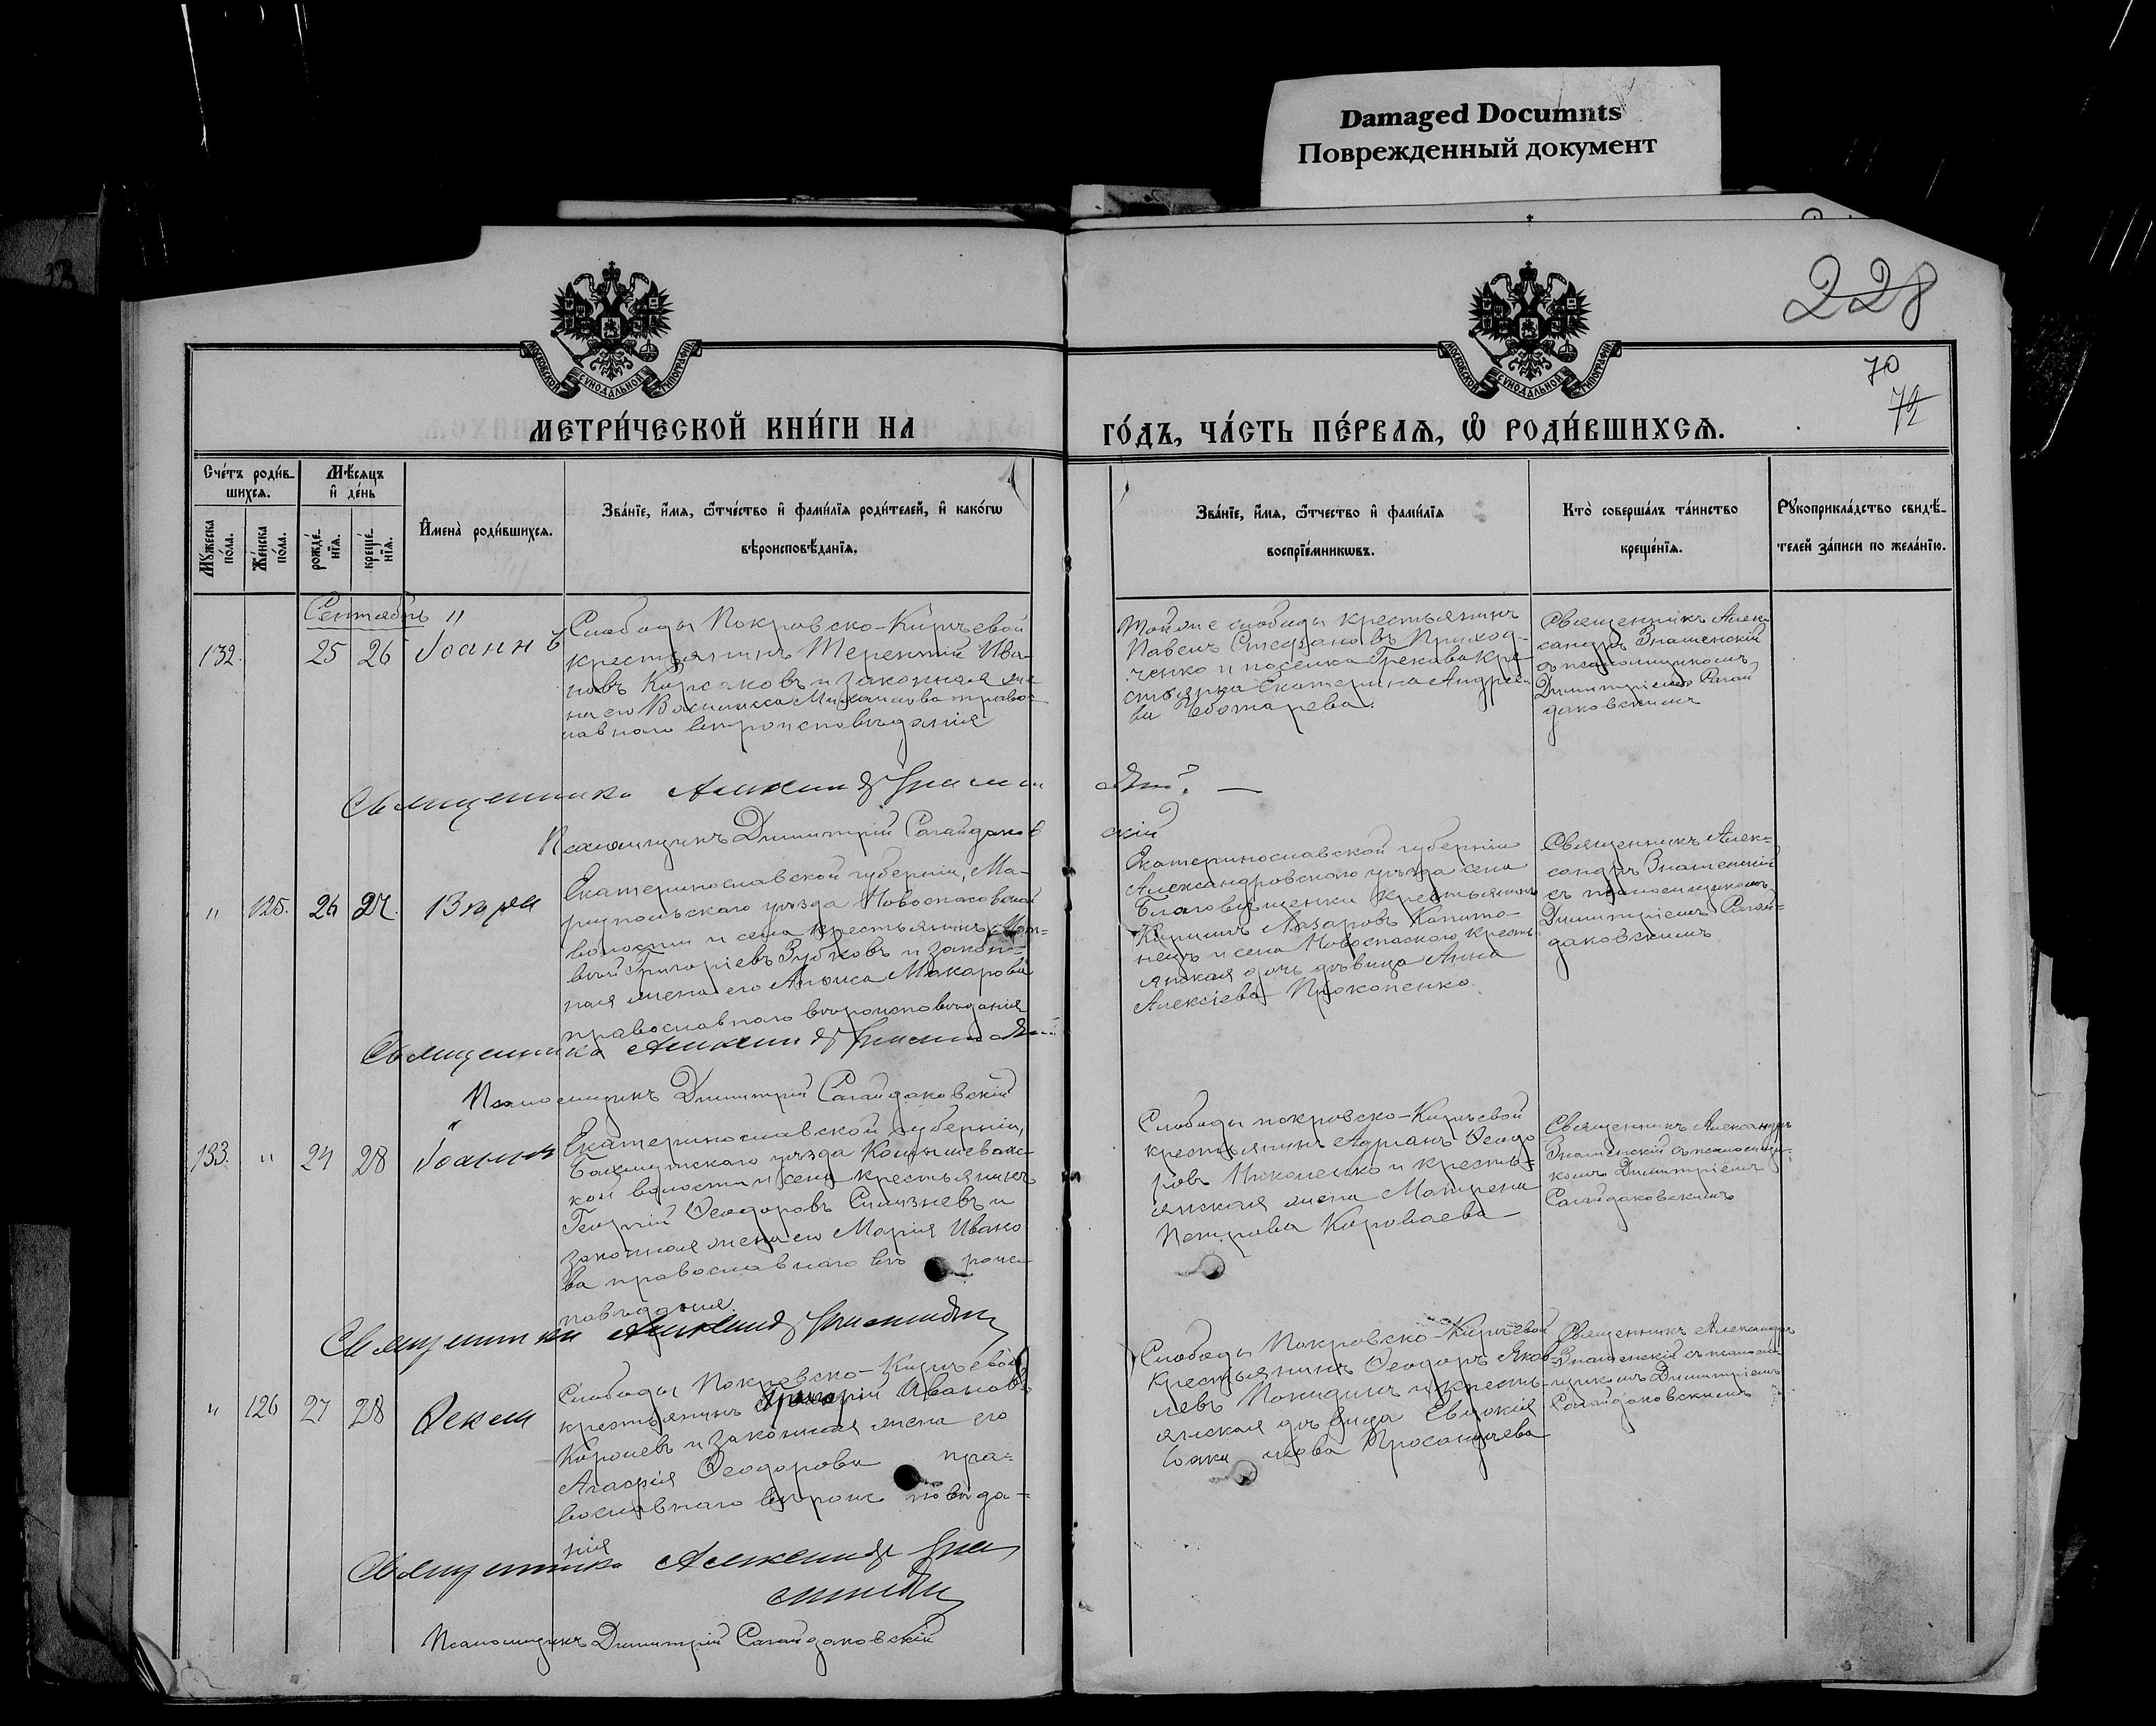 Damaged Documnts
Поврежденный документ
228
70
72
МОСКОВСКОЙ СѴНОДАЛЬНОЙ ТИПОГРАФІИ
МОСКОВСКОЙ СѴНОДАЛЬНОЙ ТИПОГРАФІИ
МЕТРИ́ЧЕСКОЙ КНИ́ГИ НА
ГО́ДЪ, ЧА́СТЬ ПЕ́РВАѦ, Ѽ РОДИ́ВШИХСѦ.
Сче́тъ роди́в-
шихсѧ.
Мѣ́сѧцъ
и҆ де́нь
Мꙋ́жеска
по́ла.
Же́нска
по́ла.
рожде́-
нїѧ.
креще́-
нїѧ.
И҆мена̀ роди́вшихсѧ.
Зва́нїе, и҆́мѧ, ѻ҆́тчество и҆ фами́лїѧ роди́телей, и҆ како́гѡ
вѣроисповѣ́данїѧ.
Зва́нїе, и҆́мѧ, ѻ҆́тчество и҆ фами́лїѧ
воспрїе́мникѡвъ.
Кто̀ соверша́лъ та́инство
креще́нїѧ.
Рꙋкоприкла́дство свидѣ́-
телей за́писи по жела́нїю.
Сентябрь
132. 25 26 Іоаннъ
Слободы Покровско-Киръевой
крестьянинъ Терентій Ива-
новъ Корсаковъ и законная же-
на его Василисса Михаилова право-
славнаго вѣроисповѣданія
Тойже слободы крестьянинъ
Павелъ Стефановъ Приход-
ченко и поселка Грекова кре-
стьянка Екатерина Андрее-
ва Чеботарева.
Священникъ Алек-
сандръ Знаменскій
съ псаломщикомъ
Димитріемъ Сагай
даковскимъ
Священникъ Александръ Знаменскій
Псаломщикъ Димитрій Сагайдаков
скій
" 125. 26 27. Вѣра
Екатеринославской губерніи, Ма-
риупольскаго уѣзда Новоспасовской
волости и села крестьянинъ Мат-
вѣй Григоріевъ Зубковъ и закон-
ная жена его Анѳиса Макарова
православнаго вѣроисповѣданія
Екатеринославской губерніи
Александровскаго уѣзда села
Благовѣщенки крестьянинъ
Кириллъ Лазаровъ
и села Новоспаского кресть-
янская дочь дѣвица Анна
Алексіева Прокопенко.
Священникъ Алек-
сандръ Знаменскій
съ псаломщикомъ
Димитріемъ Сагай-
даковскимъ
Священникъ Александръ Знаменскій
Псаломщикъ Димитрій Сагайдаковскій
133. " 24 28 Іоаннъ
Екатеринославской губерніи,
Бахмутскаго уѣзда
кой волости и села крестьянинъ
Георгій Ѳеодоровъ и
законная жена его Марія Ивано
ва православнаго вѣ роис
повѣданія.
Слободы покровско-Киръевой
крестьянинъ Адріанъ Ѳеодо
ровъ Николенко и кресть-
янская жена Матрена
Петрова Короваева
Священникъ Александръ
Знаменскій съ псаломщи-
комъ Димитріемъ
Сагайдаковскимъ
Священникъ Александръ Знаменскій
" 126 27 28 Ѳекла
Слободы Покровско-Киръевой
крестьянинъ Григорій Ивановъ
Королевъ и законная жена его
Агафія Ѳеодорова пра-
вославнаго вѣроис повѣда-
нія
Слободы Покровско-Киръевой
крестьянинъ Ѳеодоръ Яков-
левъ и кресть-
янская дѣвица Евдокія
Священникъ Александръ
Знаменскій съ псаломщ-
икомъ Димитріемъ
Сагайдаковскимъ
Священникъ Александръ Зна
менскій
Псаломщикъ Димитрій Сагайдаковскій